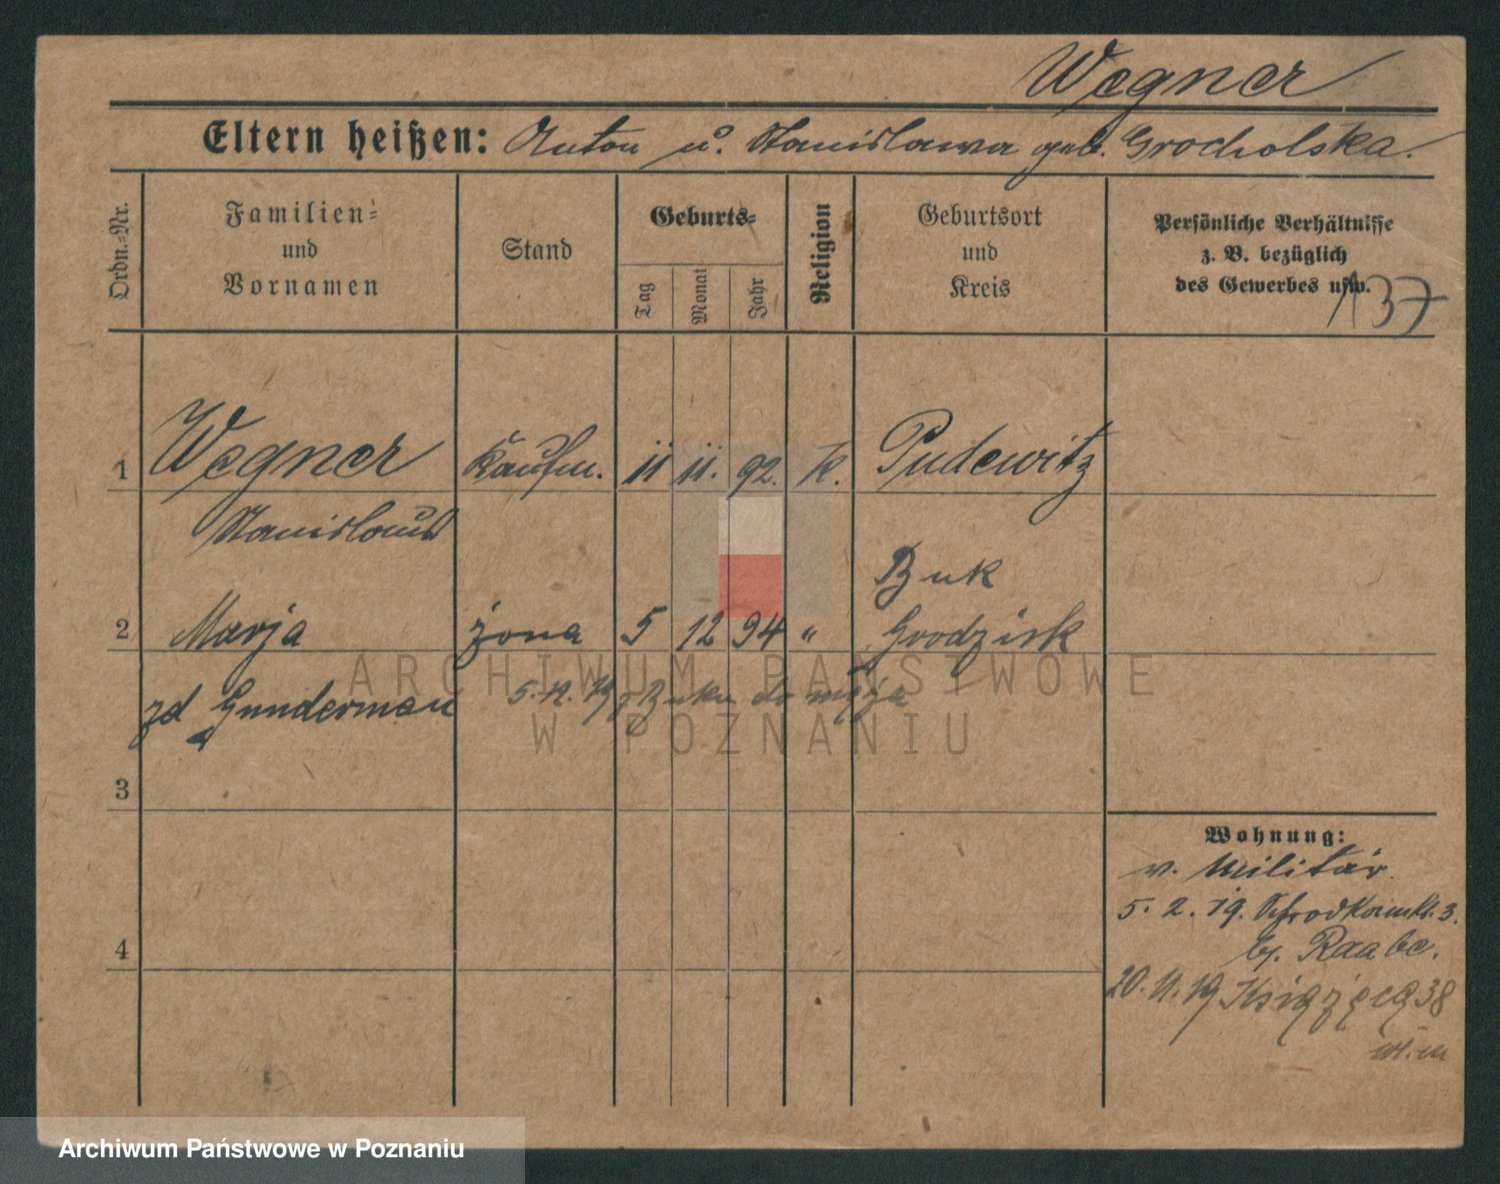 Wegner
Eltern heißen: Anton u. Stanislawa geb. Grocholska.
Ordn.-Nr.
Familien-
und
Vornamen
Stand
Geburts-
Tag
Monat
Jahr
Religion
Geburtsort
und
Kreis
Persönliche Verhältnisse
z. B. bezüglich
des Gewerbes usw.
A 37
1 Wegner Kaufm. 11 11. 92. K. Pudewitz
Stanislaus
Buk
2 Marja żona 5 12 94 " Grodzisk
zd Gunderman 5. 12. 19 z Buku do męża
3
4
Wohnung:
v. Militär.
5. 2. 19. Schrodkamkt. 3.
bj. Raabe.
20. 11. 19 Książęca 38
wł. m
ARCHIWUM PAŃSTWOWE
W POZNANIU
Archiwum Państwowe w Poznaniu